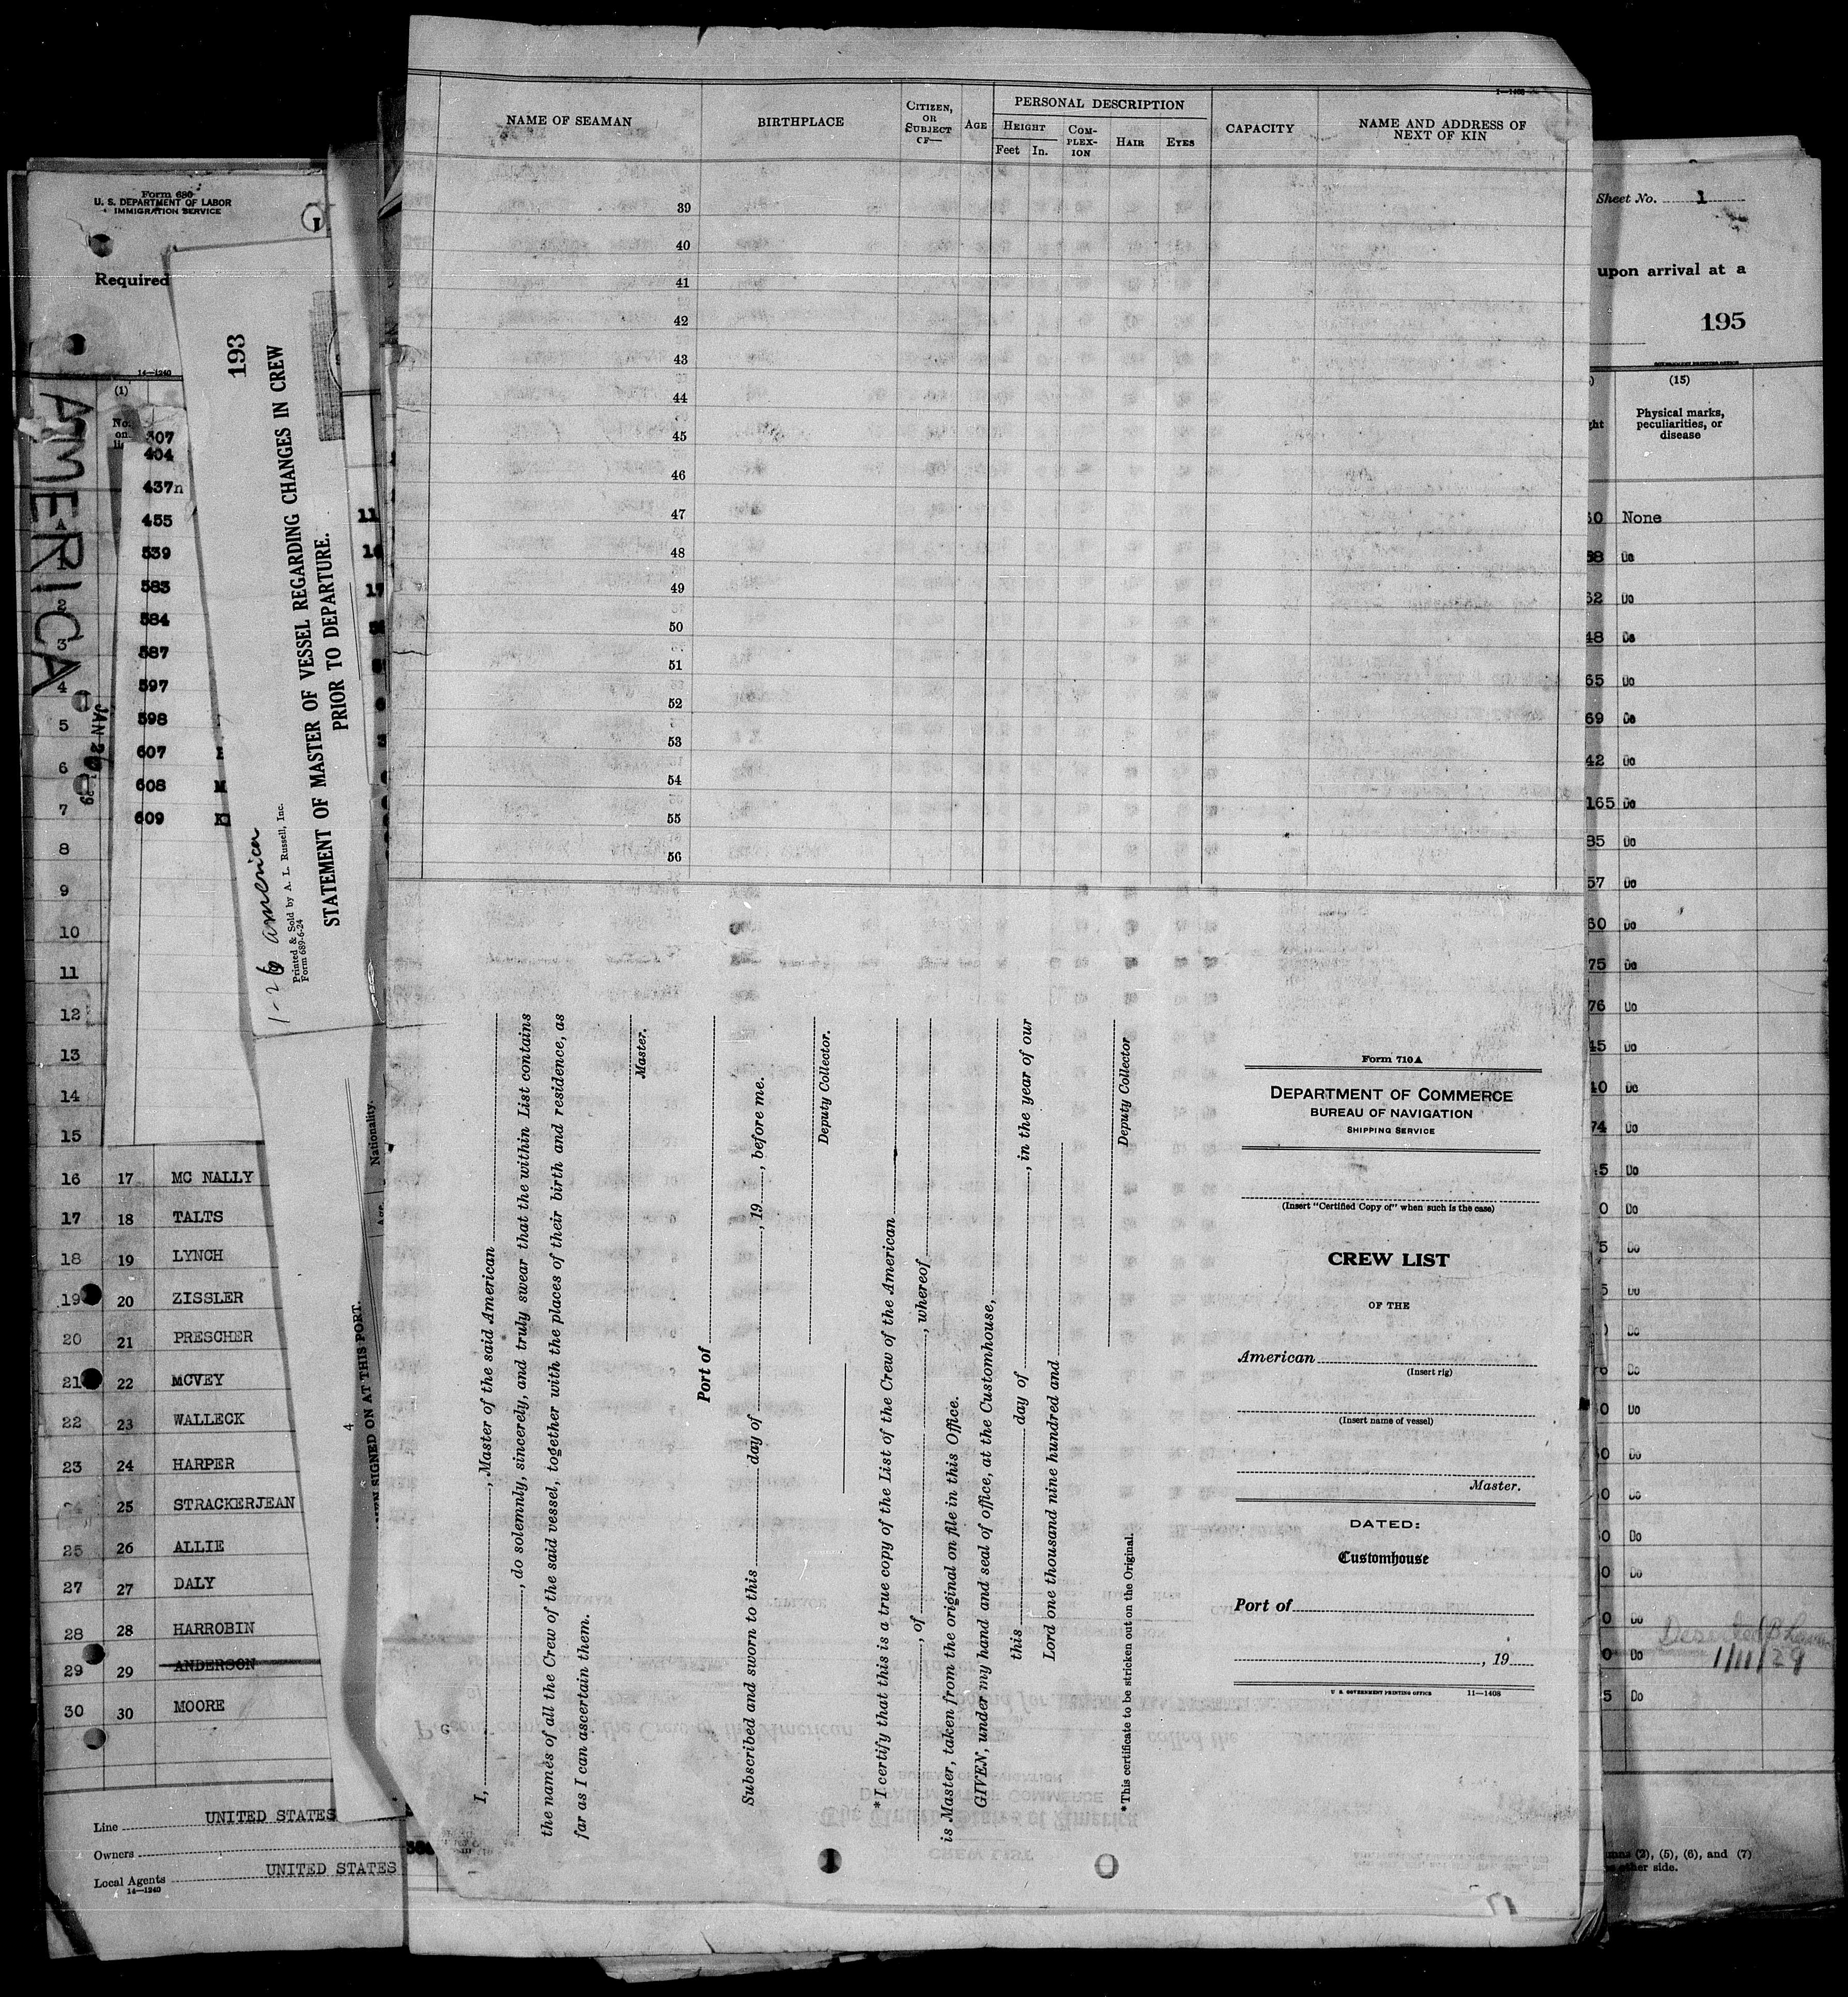 Form 680
U. S. DEPARTMENT OF LABOR
IMMIGRATION SERVICE
Required
14—1240
(1)
No. on
AMERICA
JAN 26
307
404
437n
455
539
583
584
587
597
598
607
608
609
A
1
2
3
4
5
6
7
8
9
10
11
12
13
14
15
16 17 MC NALLY
17 18 TALTS
18 19 LYNCH
19 20 ZISSLER
20 21 PRESCHER
21 22 MCVEY
22 23 WALLECK
23 24 HARPER
25 STRACKERJEAN
25 26 ALLIE
27 27 DALY
28 28 HARROBIN
29 29 ANDERSON
30 30 MOORE
Line UNITED STATES
Owners
Local Agents UNITED STATES
14—1240
193
STATEMENT OF MASTER OF VESSEL REGARDING CHANGES IN CREW
PRIOR TO DEPARTURE.
Printed & Sold by A. L. Russell, Inc.
Form 689-6-24
1-26 america
Nationality.
SIGNED ON AT THIS PORT.
4
11
NAME OF SEAMAN
BIRTHPLACE
CITIZEN, OR SUBJECT OF—
AGE
PERSONAL DESCRIPTION
HEIGHT
Feet In.
COM-PLEX-ION
HAIR
EYES
CAPACITY
NAME AND ADDRESS OF NEXT OF KIN
39
40
41
42
43
44
45
46
47
48
49
50
51
52
53
54
55
56
I, , Master of the said American
, do solemnly, sincerely, and truly swear that the within List contains
the names of all the Crew of the said vessel, together with the places of their birth and residence, as
far as I can ascertain them.
Master.
Port of
Subscribed and sworn to this day of , 19 , before me.
Deputy Collector.
*I certify that this is a true copy of the List of the Crew of the American
, of , whereof
is Master, taken from the original on file in this Office.
GIVEN, under my hand and seal of office, at the Customhouse,
this day of , in the year of our
Lord one thousand nine hundred and
Deputy Collector
*This certificate to be stricken out on the Original.
Form 710A
DEPARTMENT OF COMMERCE
BUREAU OF NAVIGATION
SHIPPING SERVICE
(Insert "Certified Copy of" when such is the case)
CREW LIST
OF THE
American
(Insert rig)
(Insert name of vessel)
Master.
DATED:
Customhouse
Port of
, 19
U. S. GOVERNMENT PRINTING OFFICE 11—1408
Sheet No. 1
upon arrival at a
195
GOVERNMENT PRINTING OFFICE
(15)
Physical marks, peculiarities, or disease
None
Do
62 Do
48 Do
65 Do
69 Do
42 Do
165 Do
85 Do
57 Do
60 Do
75 Do
76 Do
45 Do
40 Do
74 Do
5 Do
0 Do
5 Do
5 Do
Do
Do
0 Do
0 Do
0 Do
0 Do
0 Do
0 Do
0 Do
5 Do
Deserted
1/11/29
(2), (5), (6), and (7)
other side.